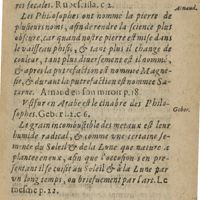 res fecales. Rupescissa. c. 2.
Les Philosophes ont nommé la pierre de
plusieurs noms, afin de rendre la science plus
obscure, car quand nostre pierre est mise dans
le vaisseau posis, & tant plus il change de
couleur, tant plus diversement est il nommé,
& apres la putrefaction est nommée Magne-
sie, & devant la putrefaction est nommée Sa-
turne. Arnaud en son miroir p. 18.
Vsifur en Arabe est le cinabre des Philo-
sophes. Geber li. 2. c. 6.
La gram incombustible des metaux est leur
humide radical, & comme une certaine se-
mence du Soleil & de la Lune que nature a
plantée en eux, afin que l'occasion s'en pre-
sentant il se cuist au Soleil & à la Lune par
un long temps, ou briefvement par l'art. Le
mesme p. 22.
Arnaud.
Geber.